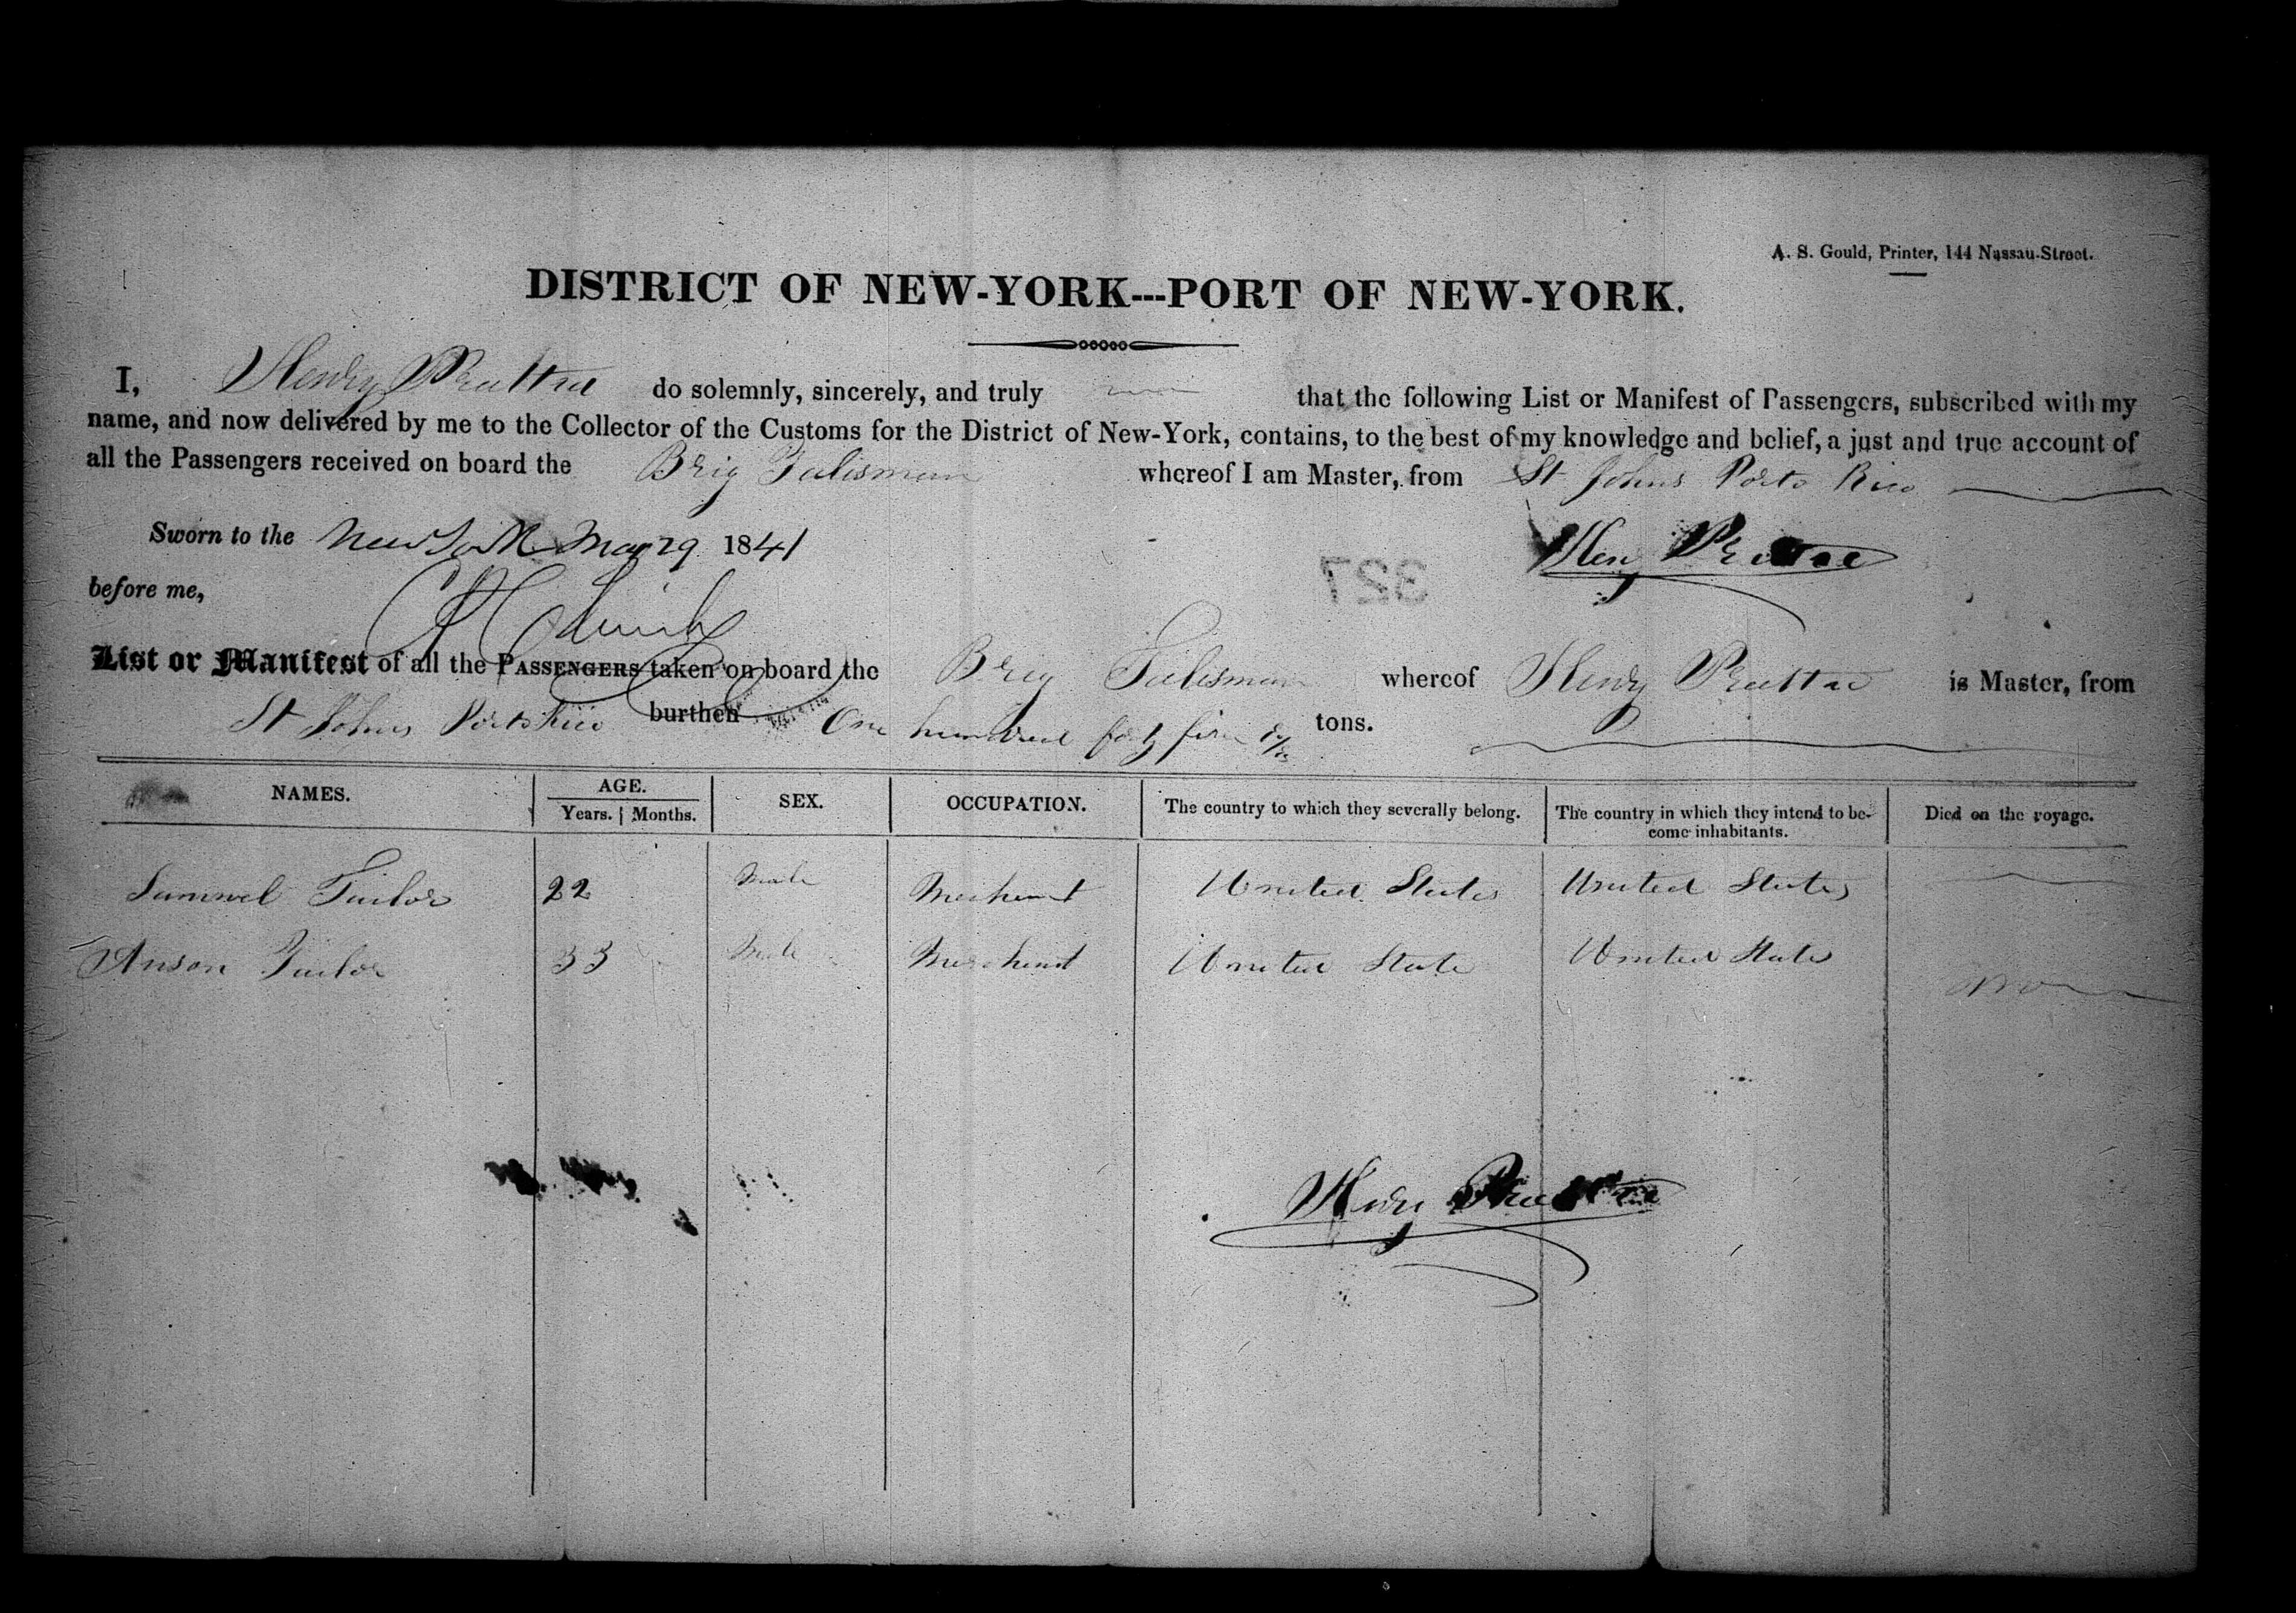 A. S. Gould, Printer, 144 Nassau-Street.
DISTRICT OF NEW-YORK---PORT OF NEW-YORK.
I, Henry do solemnly, sincerely, and truly that the following List or Manifest of Passengers, subscribed with my
name, and now delivered by me to the Collector of the Customs for the District of New-York, contains, to the best of my knowledge and belief, a just and true account of
all the Passengers received on board the Brig Talisman whereof I am Master, from St Johns Porto Rico
Sworn to the New York May 29 1841
Hen
before me,
327
List or Manifest of all the PASSENGERS taken on board the Brig Talisman whereof Henry is Master, from
St Johns Porto Rico burthen One hundred forty five tons.
NAMES. AGE. SEX. OCCUPATION. The country to which they severally belong. The country in which they intend to be- Died on the voyage.
Years. Months. come inhabitants.
Samuel Tailor 22 Male Merchant United States United States
Anson Tailor 33 Male Merchant United State United States
Henry